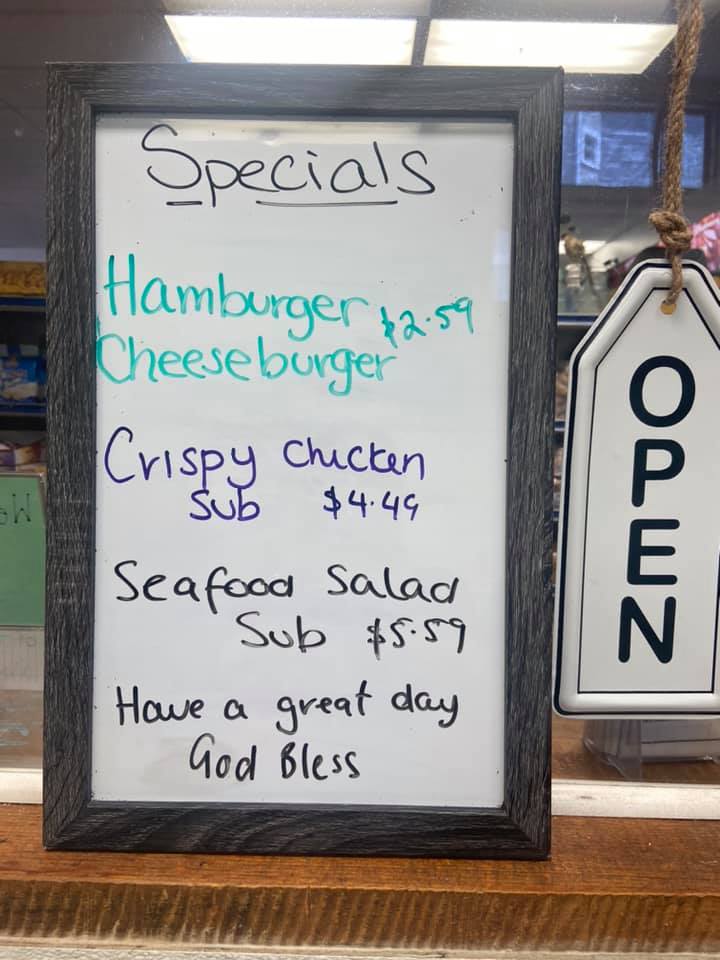 Specials
Hamburger $2.59
Cheeseburger
Crispy Chicken
Sub $4.49
Seafood Salad
Sub $5.59
Have a great day
God Bless
OPEN